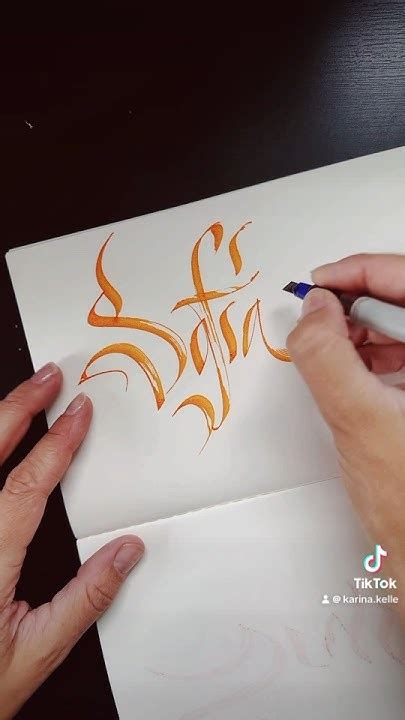 Sofia
TikTok
@karina.kelle